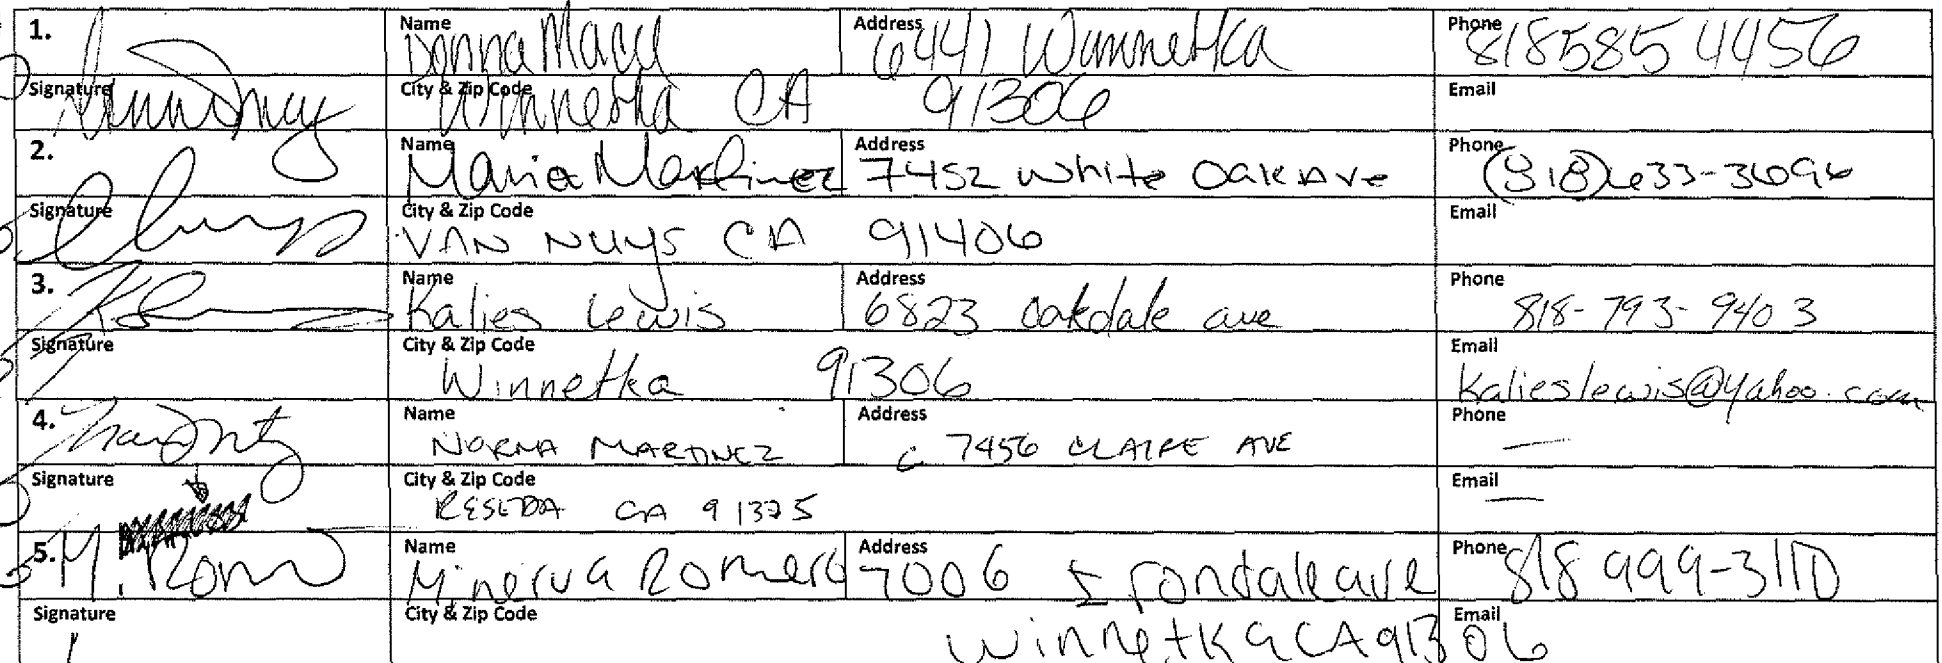 1. Name Donna Address 6441 Winnetka Phone 818 585 4456
Signature City & Zip Code Winnetka CA 91306 Email
2. Name Maria Martinez Address 7452 White Oak Ave Phone (818) 633-3696
Signature City & Zip Code VAN NUYS CA 91406 Email
3. Name Kalies Lewis Address 6823 Oakdale ave Phone 818-793-9403
Signature City & Zip Code Winnetka 91306 Email Kalieslewis@yahoo.com
4. Name NORMA MARTINEZ Address 7456 CLAIRE AVE Phone —
Signature City & Zip Code RESEDA CA 91335 Email —
5. M. Rom Name Minerva Romero Address 7006 Irondale ave Phone 818 999-3110
Signature City & Zip Code Winnetka CA 91306 Email